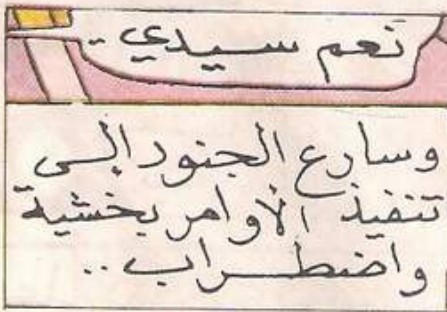 نعم سيدي..
وسارع الجنود إلى
تنفيذ الأوامر بخشية
واضطراب..